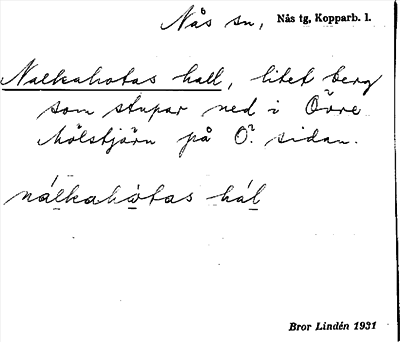 Nås sn, Nås tg, Kopparb. l.
Nalkahotas hall, litet berg
som stupar ned i Övre
Mölstjärn på Ö. sidan.
nálkahòtas hál
Bror Lindén 1931